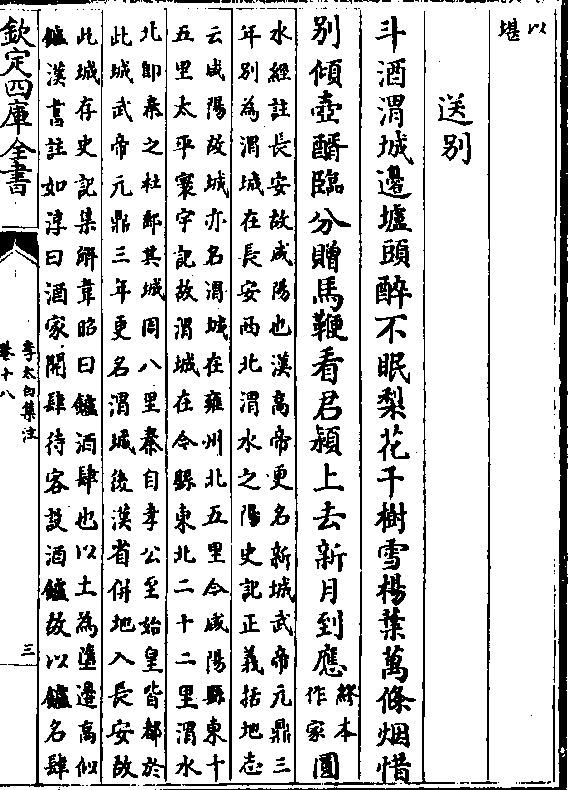 以
堪
送别
斗酒渭城邊壚頭醉不眠梨花千樹雪楊葉萬條烟惜
别傾壺醑臨分贈馬鞭看君潁上去新月到應繆本作家圓
水經註長安故咸陽也漢高帝更名新城武帝元鼎三
年别為渭城在長安西北渭水之陽史記正義括地志
云咸陽故城亦名渭城在雍州北五里今咸陽縣東十
五里太平寰宇記故渭城在今縣東北二十二里渭水
北即秦之杜郵其城周八里秦自孝公至始皇皆都於
此城武帝元鼎三年更名渭城後漢省併地入長安故
此城存史記集解韋昭曰鑪酒肆也以土為墮邊高似
鑪漢書註如淳曰酒家開肆待客設酒鑪故以鑪名肆
欽定四庫全書
李太白集注
卷十八
三